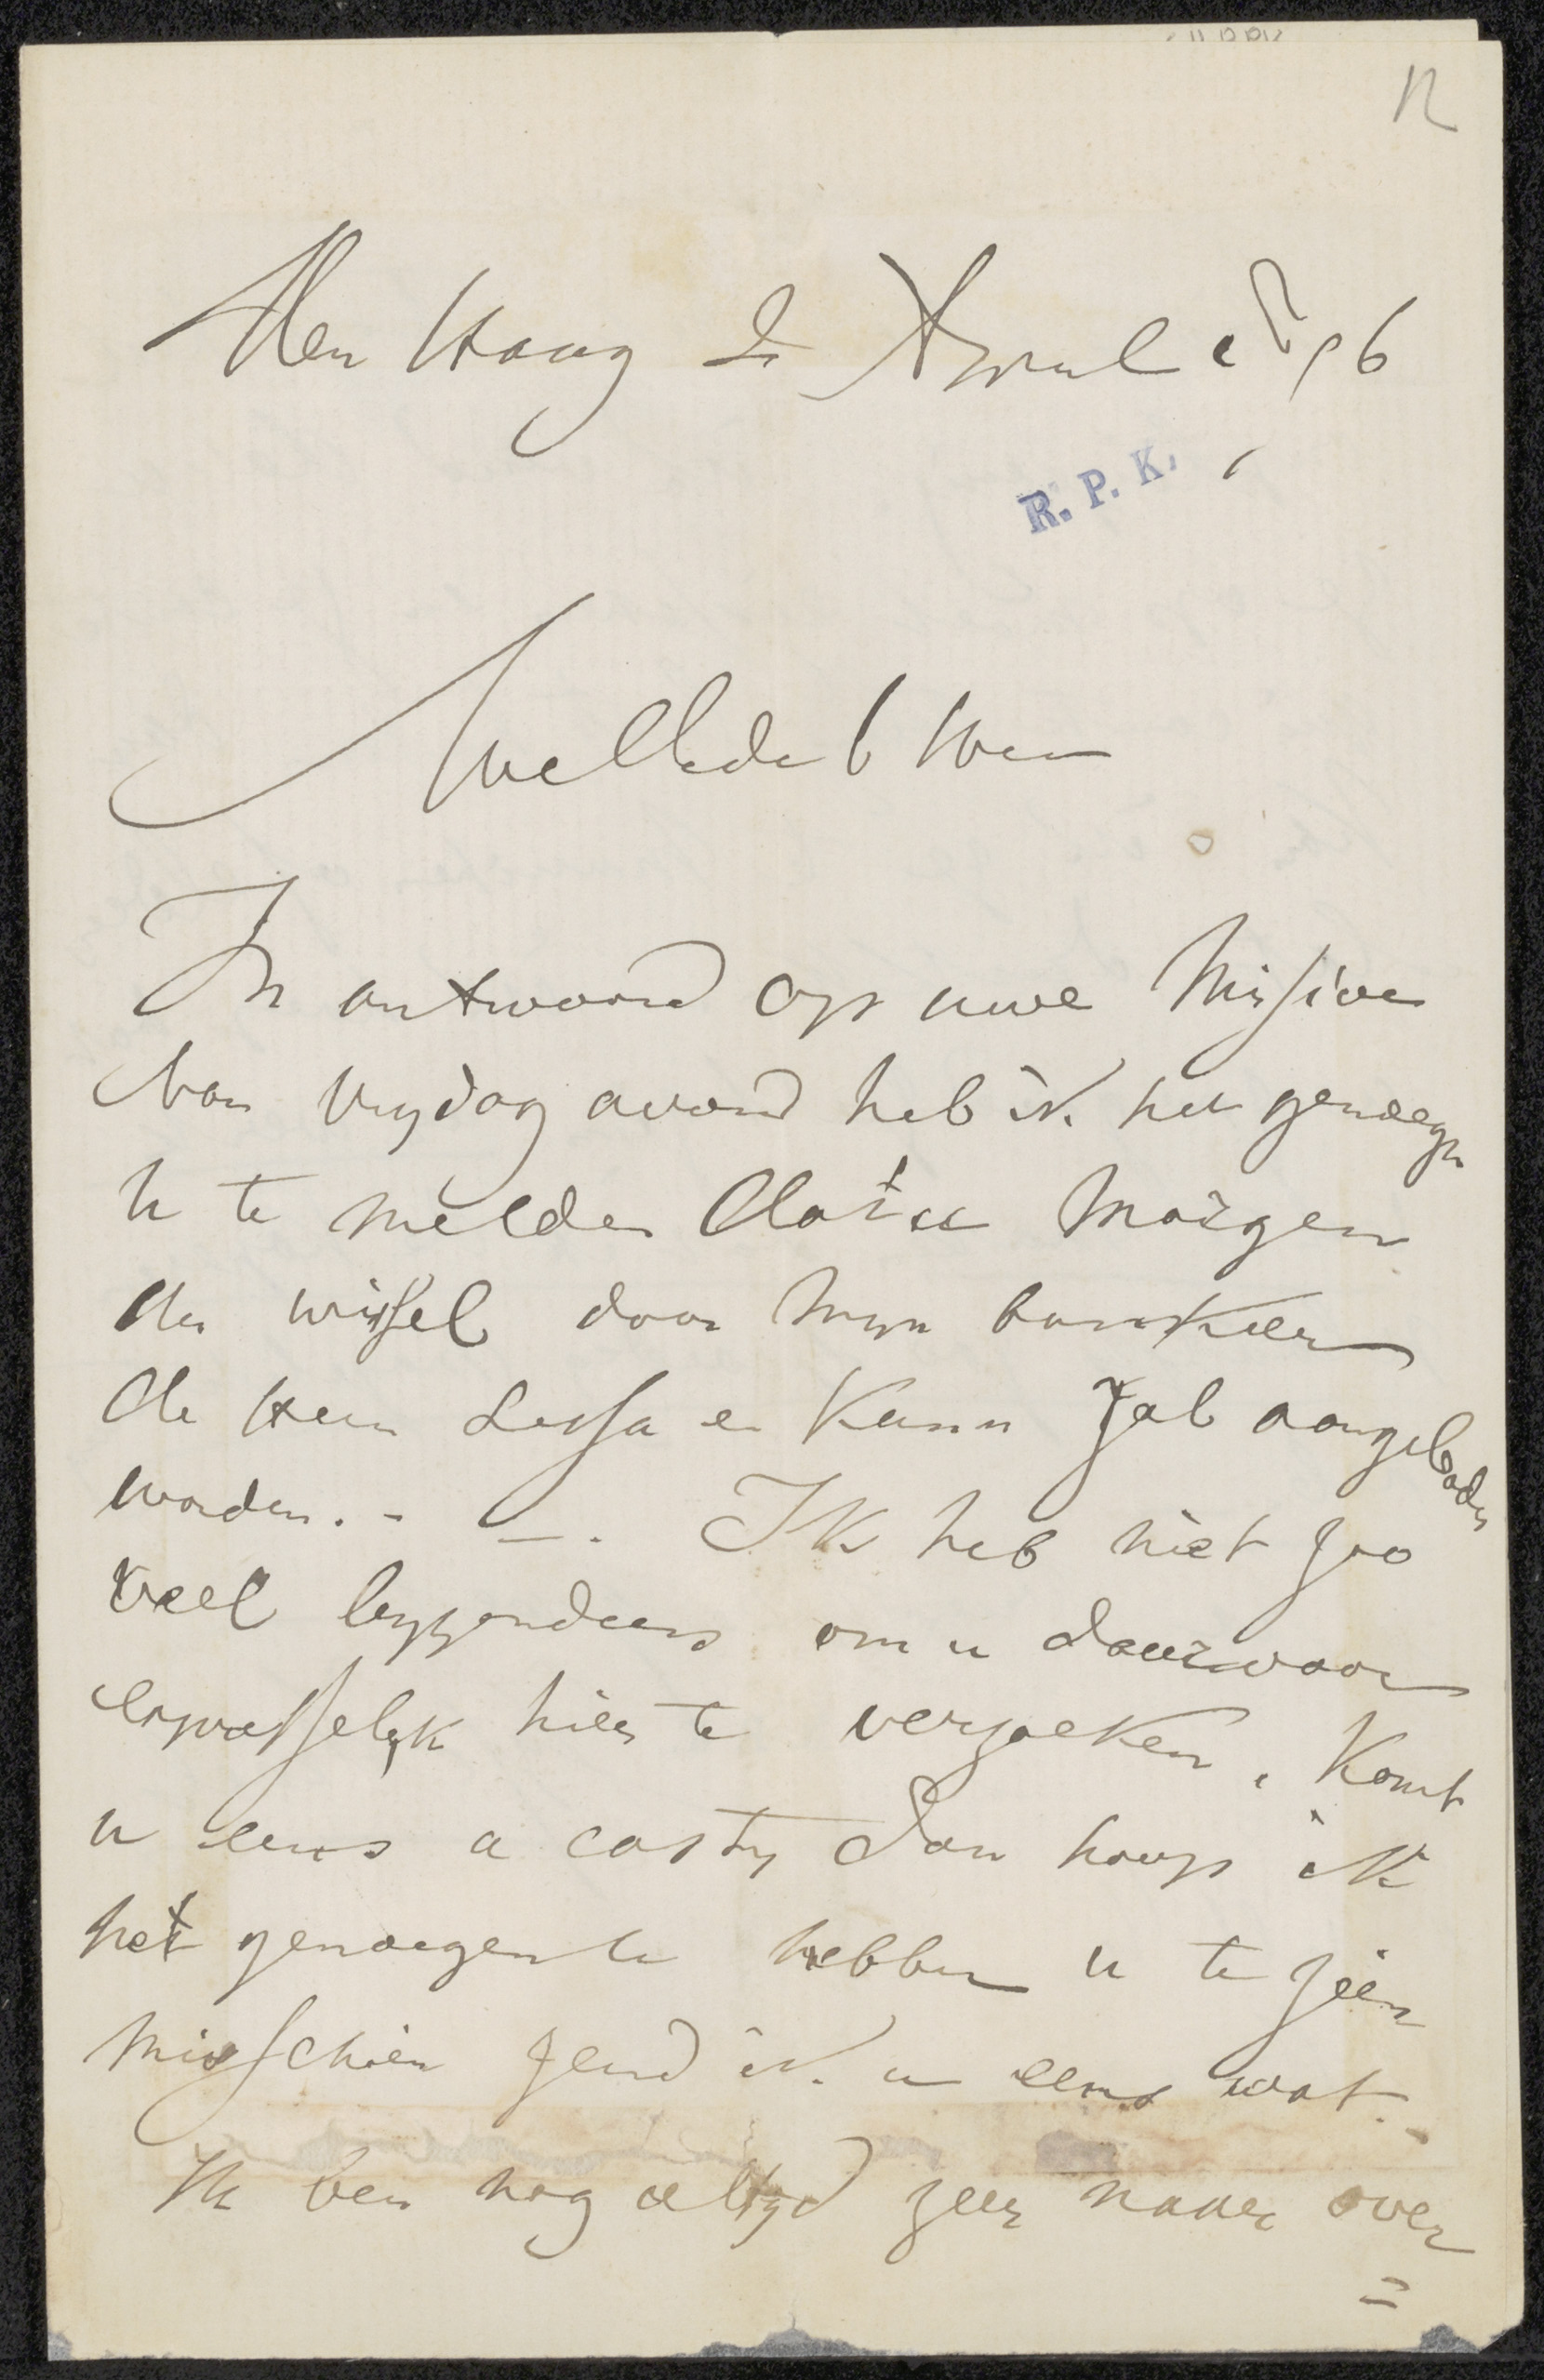 12
den Haag 2 April 1896
R. P. K.
WelEdele Heer
In antwoord op uwe Missive
van Vrydag avond heb ik het genoegen
u te melden dat u morgen
den wissel door myn bankier
de Heer en Kann zal aangeboden
worden. - - . Ik heb niet zoo
veel byzonders om u daarvoor
expresselyk hier te verzoeken, komt
u eens a costy dan hoop ik
het genoegen te hebben u te zien
misschien zend ik u eens wat. -
Ik ben nog altyd zeer naar over
=